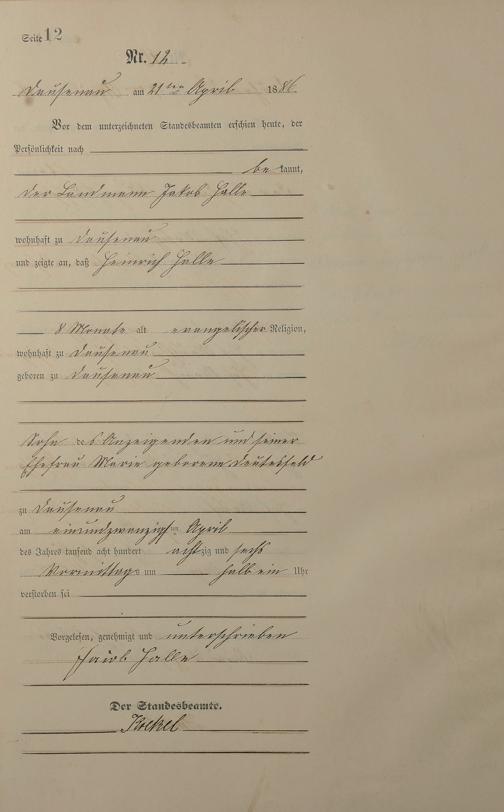 Seite 12
Nr. 12
Dausenau am 21ten April 1886.
Vor dem unterzeichneten Standesbeamten erschien heute, der
Persönlichkeit nach
be kannt,
der Landmann Jakob Halle
wohnhaft zu Dausenau
und zeigte an, daß Heinrich Halle
8 Monate alt evangelischer Religion,
wohnhaft zu Dausenau
geboren zu Dausenau
Sohn des Anzeigenden und seiner
Ehefrau Marie geborene
zu Dausenau
am einundzwanzigsten April
des Jahres tausend acht hundert achtzig und sechs
Vormittags um halb ein Uhr
verstorben sei
Vorgelesen, genehmigt und unterschrieben
Jacob Halle
Der Standesbeamte.